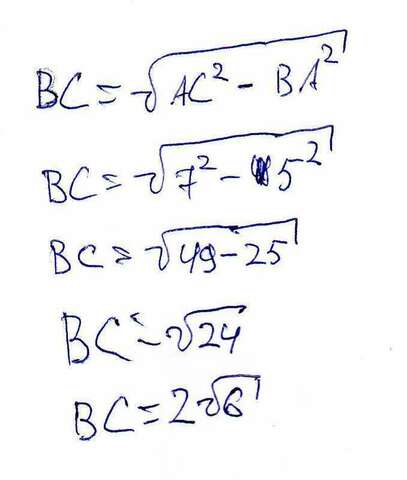 BC = √AC² - BA²
BC = √7² - 5²
BC = √49 - 25
BC = √24
BC = 2√6